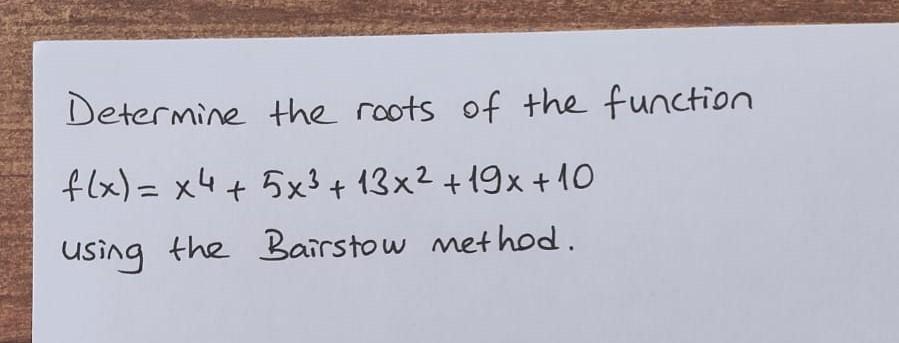 Determine the roots of the function
f(x) = x⁴ + 5x³ + 13x² + 19x + 10
using the Bairstow method.